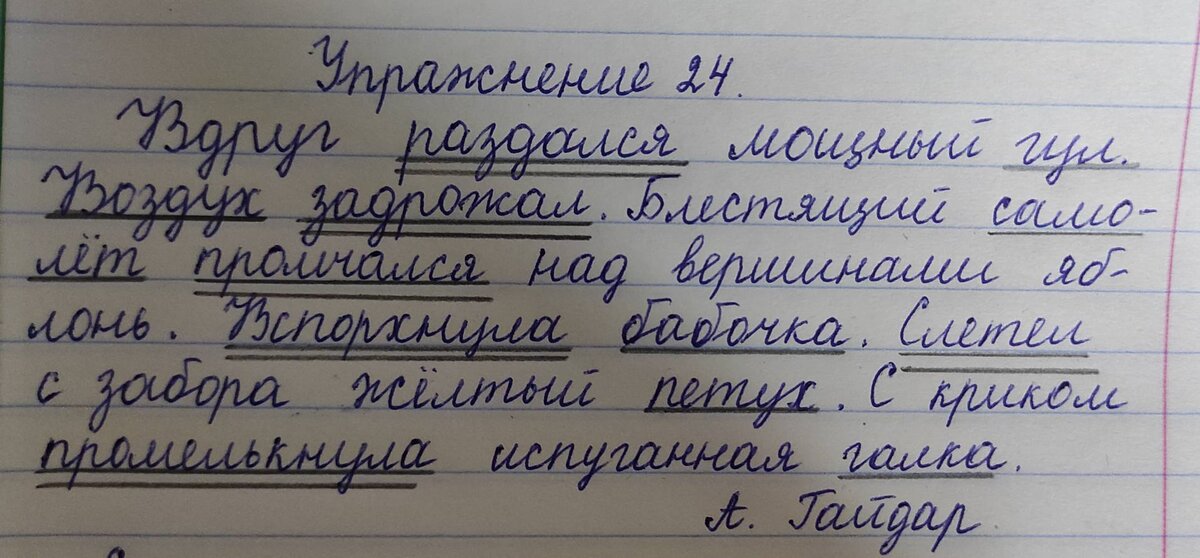 Упражнение 24.
Вдруг раздался мощный гул.
Воздух задрожал. Блестящий само-
лёт промчался над вершинами яб-
лонь. Вспорхнула бабочка. Слетел
с забора жёлтый петух. С криком
промелькнула испуганная галка.
А. Гайдар